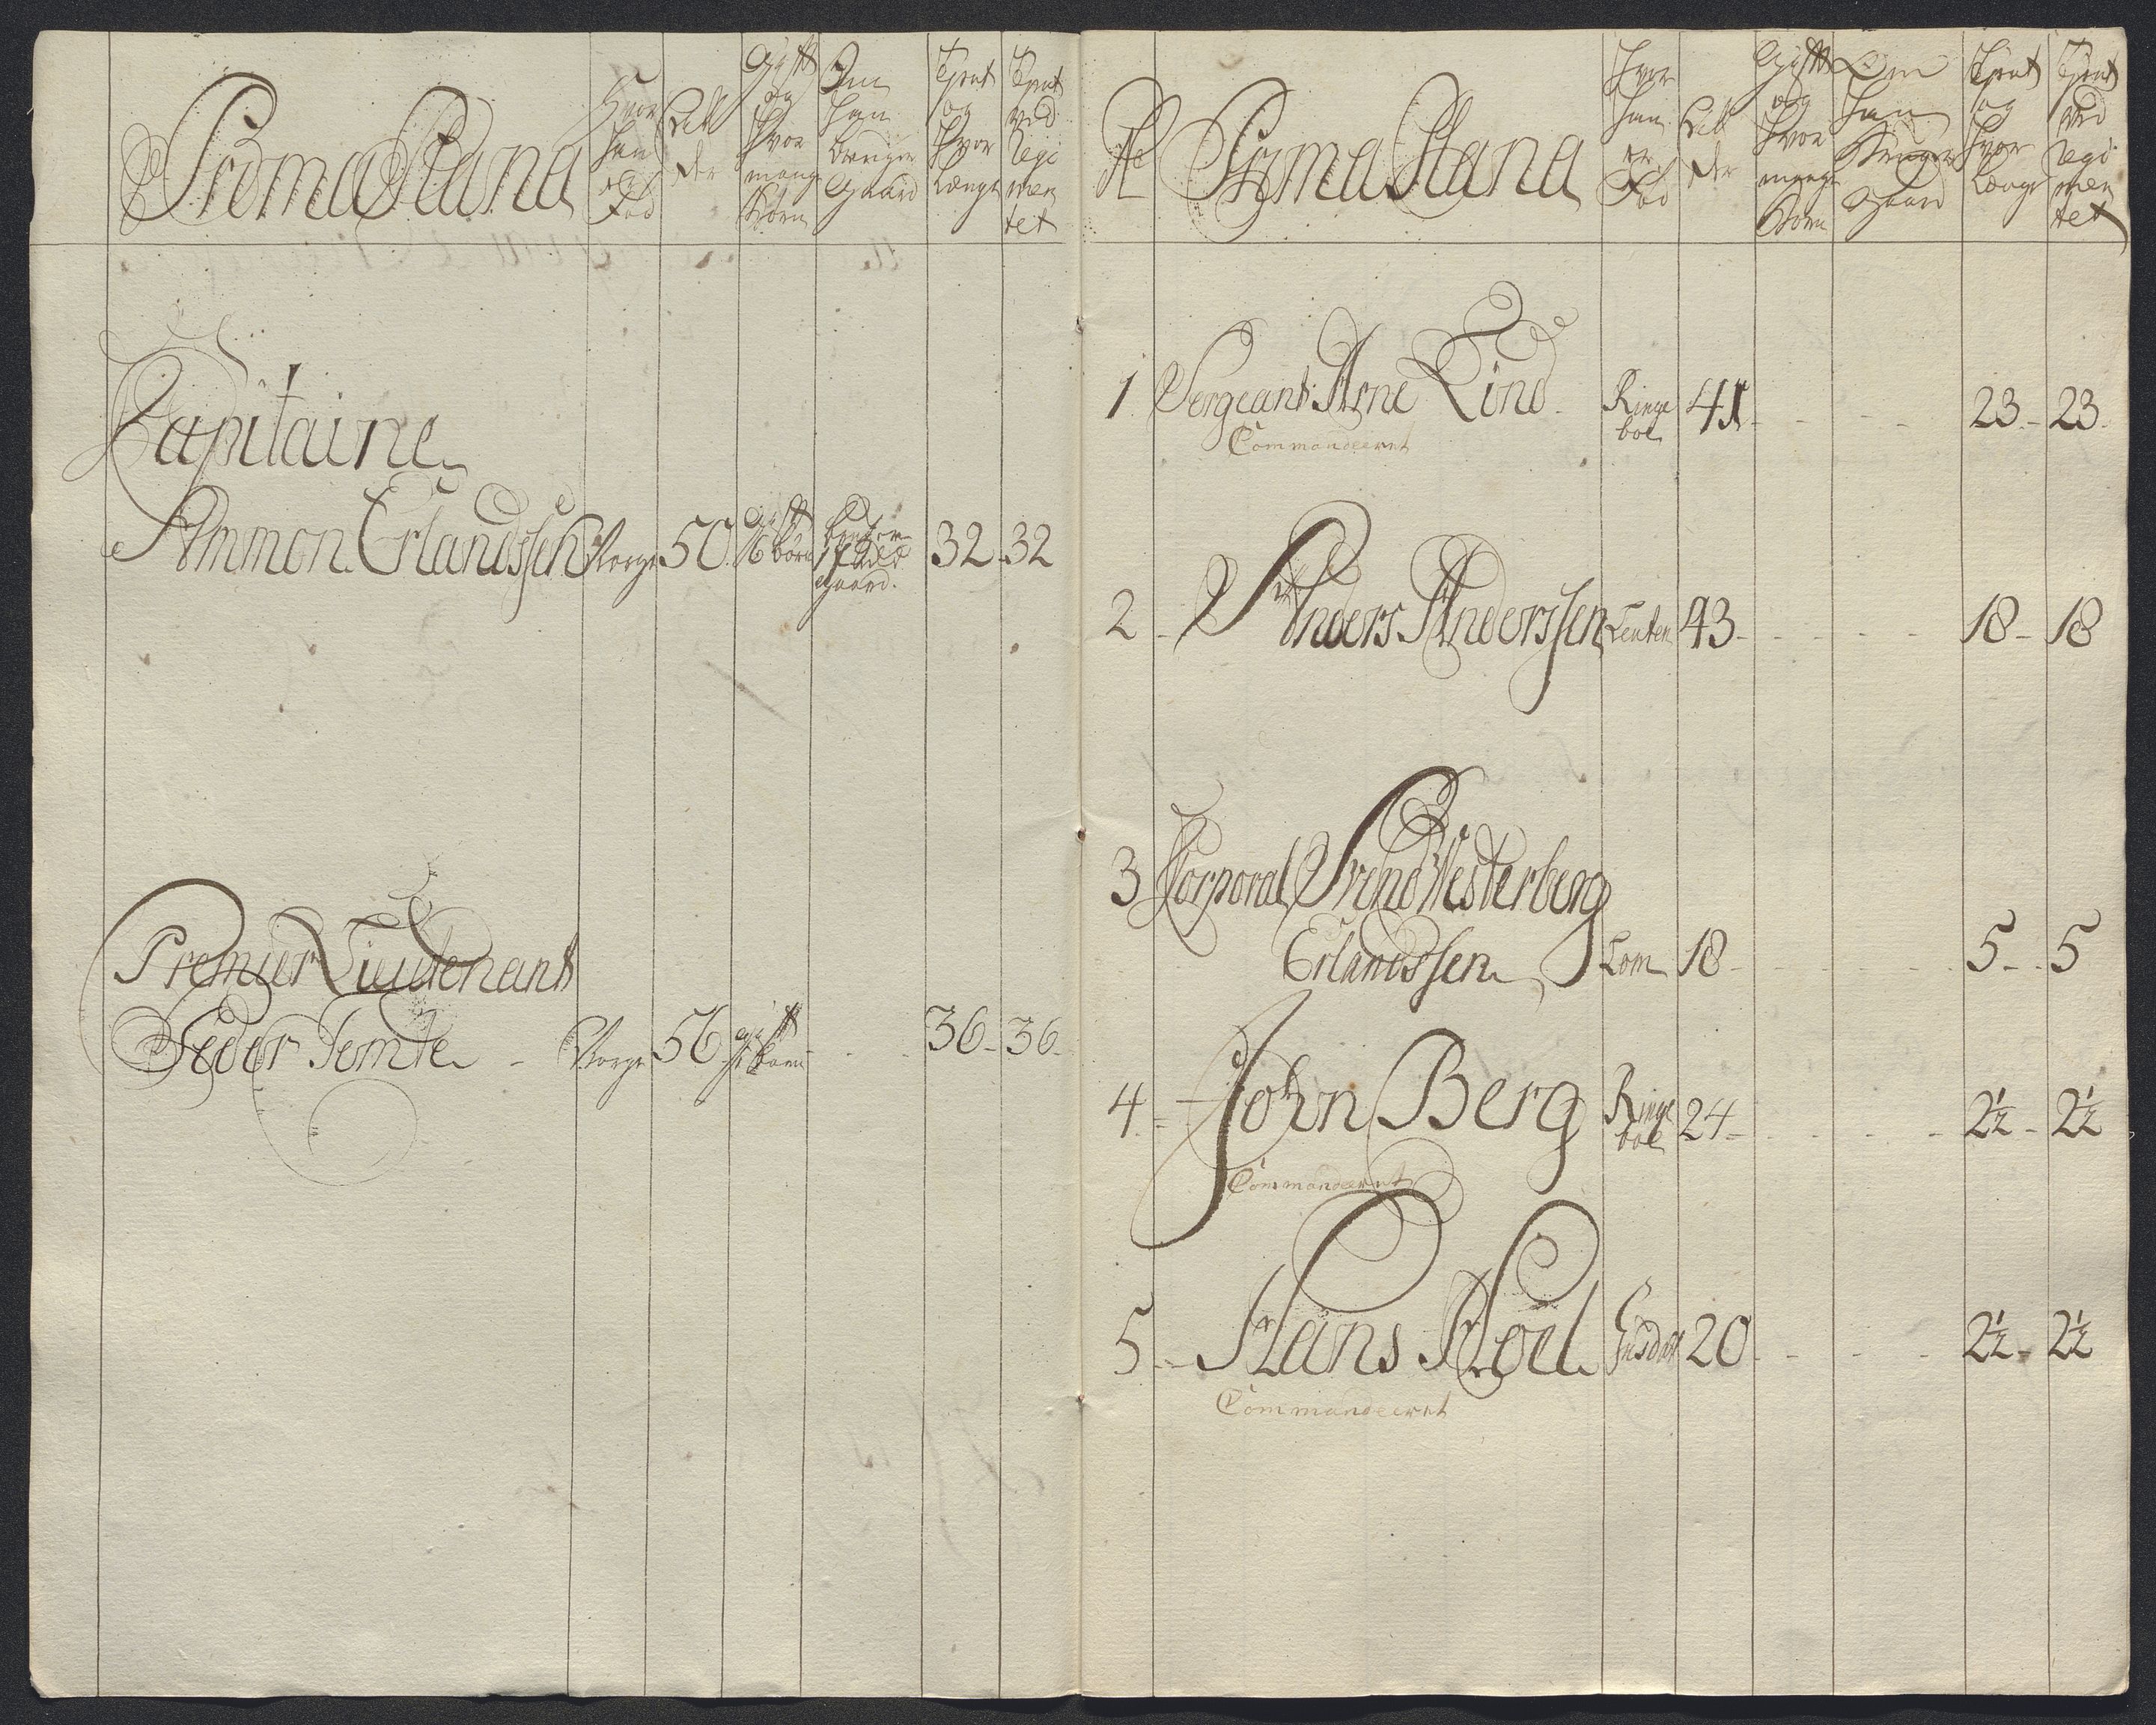 Prima Plana
Hvor
han
er
Fød
Æll
der
Gift
og
Hvor
mange
Børn
Om
han
bruger
Gaard
Tjent
og
Hvor
længe
Tjent
ved
Regi
men
tet
Capitaine
Ammon Erlandssen Norge 50 gift 6 børn
gaard. 32 32
Premier Lieutenant
Peder Tomte - Norge 56 gift børn 36 - 36
No Prima Plana
Hvor
han
er
Fød
Æll
der
Gift
og
Hvor
mange
Børn
Om
han
bruger
Gaard
Tjent
og
Hvor
længe
Tjent
ved
Regi
men
tet
1 Sergeant Arne Lind Ringe 41 - - - 23 - 23
boe
Commandeeret
2 - Anders Anderssen 43 - - - 18 - 18
3 Corporal Svend Westerberg
Erlandssen Lom 18 - - - 5 - 5
4 - John Berg Ringe 24 - - - 2½ - 2½
boe
Commandeeret
5 - Hans Hoel 20 - - - 2½ - 2½
Commandeeret